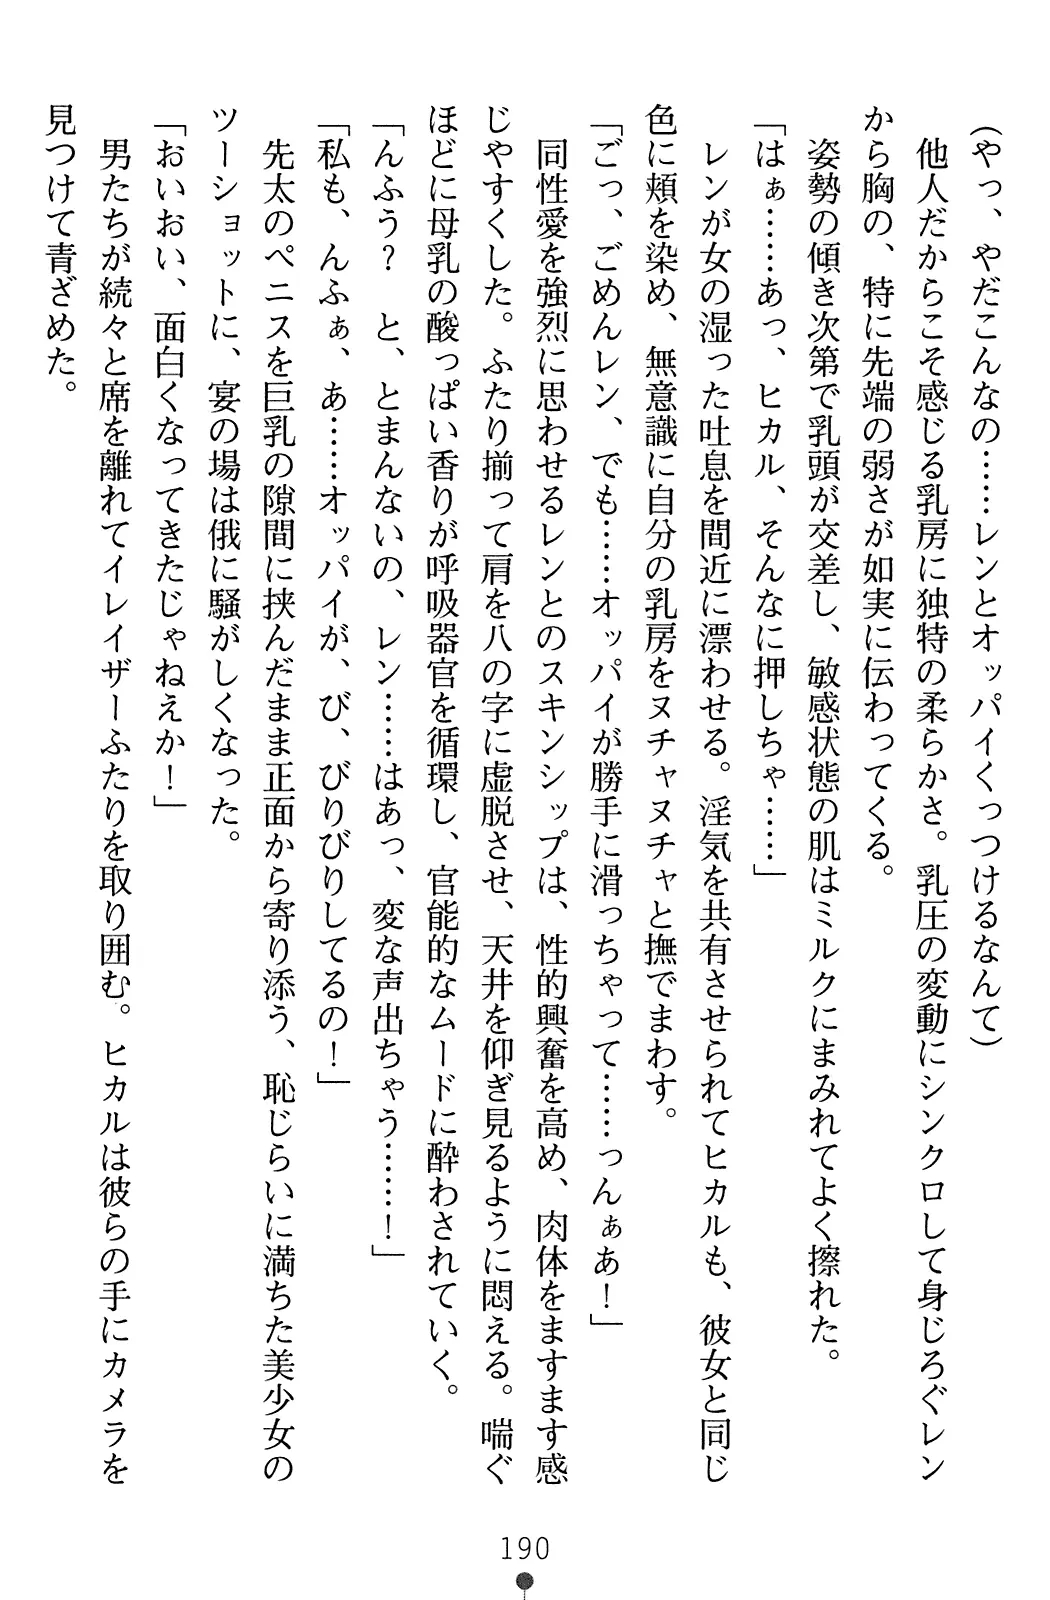 (やっ、やだこんなの……レンとオッパイくっつけるなんて)
他人だからこそ感じる乳房に独特の柔らかさ。乳圧の変動にシンクロして身じろぐレン
から胸の、特に先端の弱さが如実に伝わってくる。
姿勢の傾き次第で乳頭が交差し、敏感状態の肌はミルクにまみれてよく擦れた。
「はぁ……あっ、ヒカル、そんなに押しちゃ……」
レンが女の湿った吐息を間近に漂わせる。淫気を共有させられてヒカルも、彼女と同じ
色に頬を染め、無意識に自分の乳房をヌチャヌチャと撫でまわす。
「ごっ、ごめんレン、でも……オッパイが勝手に滑っちゃって……っんぁあ！」
同性愛を強烈に思わせるレンとのスキンシップは、性的興奮を高め、肉体をますます感
じやすくした。ふたり揃って肩を八の字に虚脱させ、天井を仰ぎ見るように悶える。喘ぐ
ほどに母乳の酸っぱい香りが呼吸器官を循環し、官能的なムードに酔わされていく。
「んふう？　と、とまんないの、レン……はあっ、変な声出ちゃう……！」
「私も、んふぁ、あ……オッパイが、び、びりびりしてるの！」
先太のペニスを巨乳の隙間に挟んだまま正面から寄り添う、恥じらいに満ちた美少女の
ツーショットに、宴の場は俄に騒がしくなった。
「おいおい、面白くなってきたじゃねえか！」
男たちが続々と席を離れてイレイザーふたりを取り囲む。ヒカルは彼らの手にカメラを
見つけて青ざめた。
190